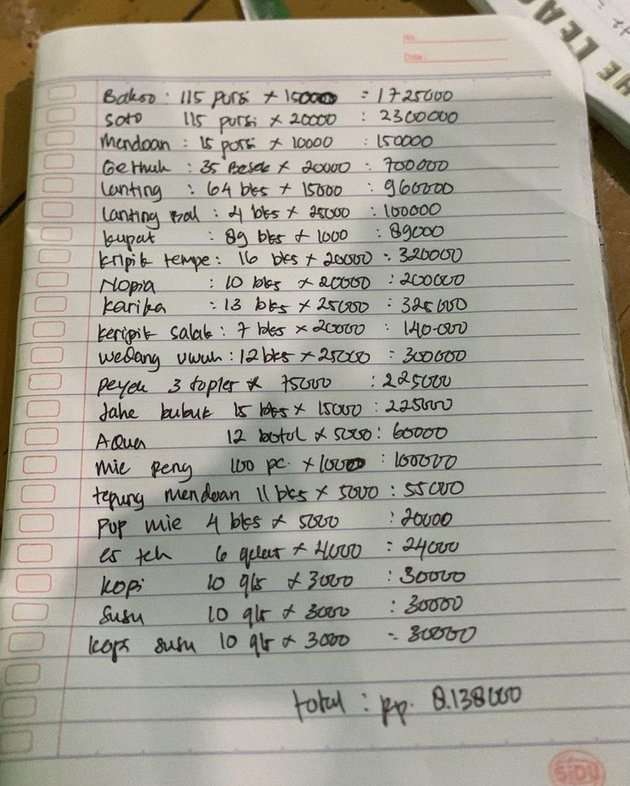 No:
Date:
THE LEA
Bakso : 115 porsi x 15000 = 1725000
Soto 115 porsi x 20000 : 2300000
Mendoan : 15 porsi x 10000 : 150000
Gethuk : 35 Besek x 20000 : 700000
Lanting : 64 bks x 15000 : 960000
Lanting Bal : 4 bks x 25000 : 100000
kupat : 89 bks x 1000 : 89000
kripik tempe : 16 bks x 20000 = 320000
Nopia : 10 bks x 20000 : 200000
karika : 13 bks x 25000 : 325000
keripik salak : 7 bks x 20000 : 140.000
wedang uwuh : 12 bks x 25000 = 300000
peyek 3 topler x 75000 : 225000
Jahe bubuk 15 bks x 15000 : 225000
Aqua 12 botol x 5000 : 60000
mie peng 100 pc. x 1000 : 100000
tepung mendoan 11 bks x 5000 : 55000
pop mie 4 bks x 5000 : 20000
es teh 6 gelas x 4000 = 24000
kopi 10 gls x 3000 : 30000
susu 10 gls x 3000 : 30000
kopi susu 10 gls x 3000 = 30000
total : Rp. 8.138000
SIDU